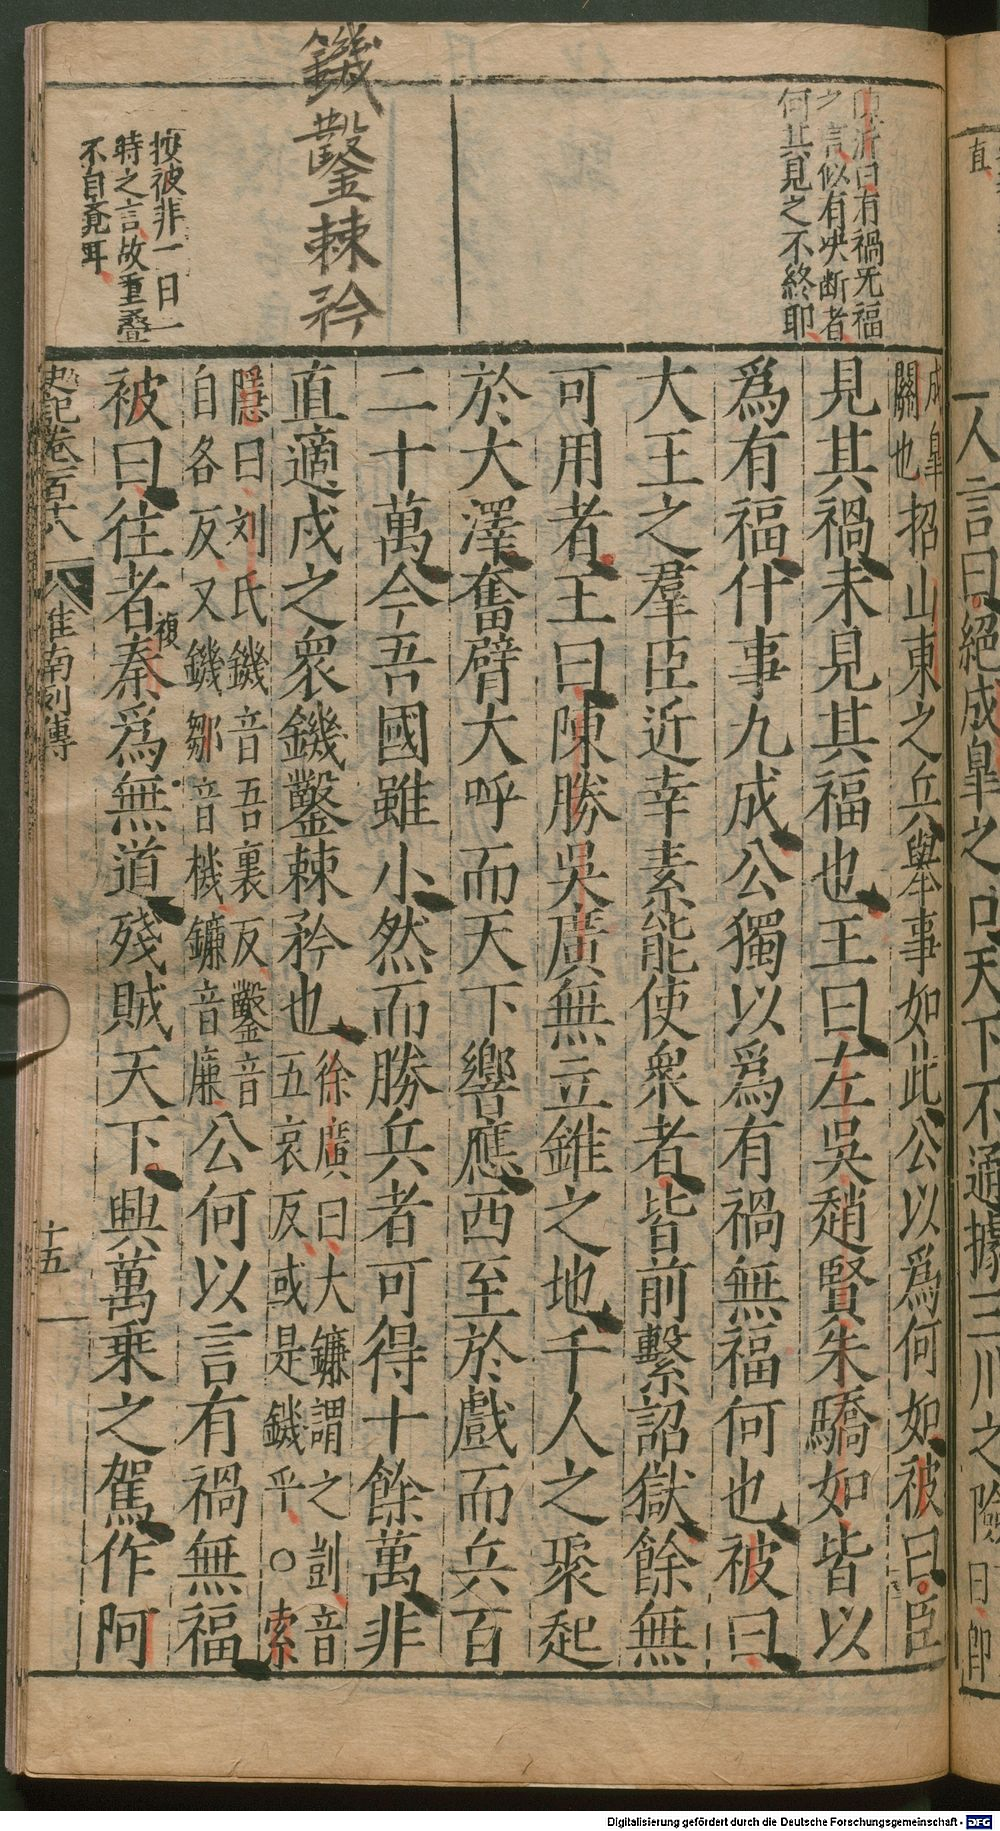 陳沂曰有禍无福
之言似有央断者
何其見之不終耶
鐖鑿棘矜
按被非一日一
時之言故重疊
不自竟耳
成皐
關也招山東之兵舉事如此公以爲何如被曰臣
見其禍未見其福也王曰左吳趙賢朱驕如皆以
爲有福什事九成公獨以爲有禍無福何也被曰
大王之羣臣近幸素能使衆者皆前繫詔獄餘無
可用者王曰陳勝吳廣無立錐之地千人之聚起
於大澤奮臂大呼而天下響應西至於戲而兵百
二十萬今吾國雖小然而勝兵者可得十餘萬非
直適戍之衆鐖鑿棘矜也
徐廣曰大鐮謂之剴音
五哀反或是鐖乎○索
隱曰刘氏鐖音吾裏反鑿音
自各反又鐖鄒音機鐮音廉公何以言有禍無福
被曰往者秦爲無道殘賊天下興萬乘之駕作阿
複
史記卷百十八
淮南列傳
十五
人言曰絕成皐之口天下不通據三川之險
曰卽
直
Digitalisierung gefördert durch die Deutsche Forschungsgemeinschaft - DFG